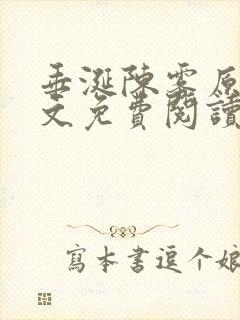 垂涎陳雾原
文免費閱讀
寫本書逗个娘